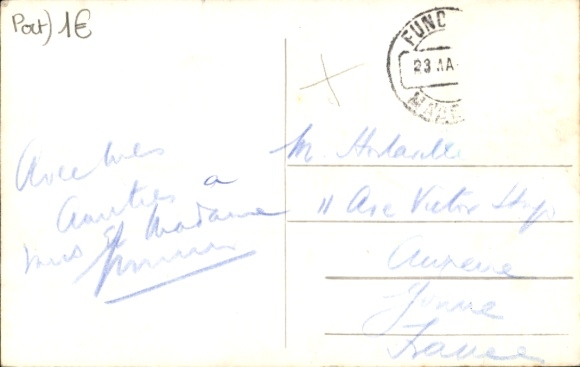 Port) 1€
FUNC
23 MA
Avec mes
Amitiés à
vous et Madame
M.
11 Ave Victor Hugo
Auxerre
Yonne
France